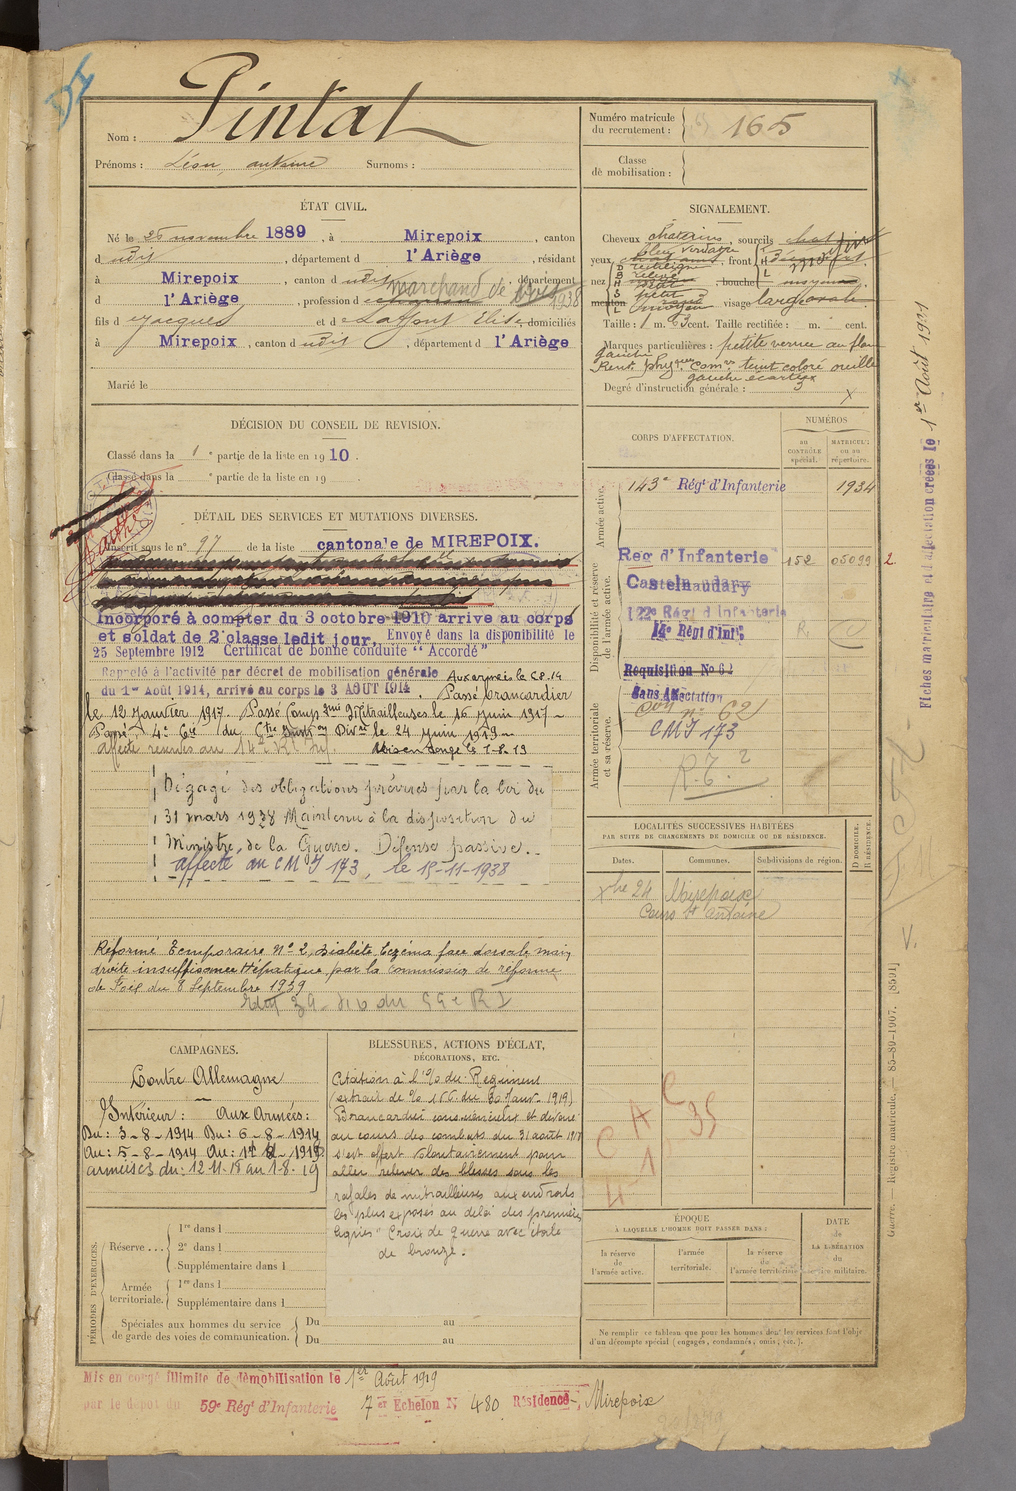 Pintat
Nom :
Prénoms : Léon, antoine Surnoms :
Numéro matricule
du recrutement : 165
Classe
de mobilisation :
ÉTAT CIVIL.
Né le 25 novembre 1889, à Mirepoix, canton
d udit, département d l'Ariège, résidant
à Mirepoix, canton d udit, département
d l'Ariège, profession d marchand de 1938
fils d Jacques et d Laffont Elise, domiciliés
à Mirepoix, canton d udit, département d l'Ariège
Marié le
SIGNALEMENT.
Cheveux chatains, sourcils
bleu verdatre
yeux, front
rectiligne
nez relevé, bouche moyenne
menton visage large ovale
Taille : 1 m. 63 cent. Taille rectifiée : m. cent.
Marques particulières : petite verrue au flan
gauche
Rens. phys. com. teint coloré oreille
gauche écartée
Degré d'instruction générale :
X
DÉCISION DU CONSEIL DE REVISION.
Classé dans la 1e partie de la liste en 1910.
Classé dans la e partie de la liste en 19
DÉTAIL DES SERVICES ET MUTATIONS DIVERSES.
Inscrit sous le n° 97 de la liste cantonale de MIREPOIX.
Incorporé à compter du 3 octobre 1910 arrivé au corps
et soldat de 2e classe ledit jour. Envoyé dans la disponibilité le
25 Septembre 1912 Certificat de bonne conduite "Accordé"
Rappelé à l'activité par décret de mobilisation générale Aux armées le 6.8.14
du 1er Août 1914, arrivé au corps le 3 AOUT 1914. Passé brancardier
le 12 Janvier 1917. Passé Comp. Mitrailleuses le 16 Juin 1917 –
Passé 4e Cie du Ctre Divre le 24 Juin 1919 –
Mis en congé le 1-8-19
Dégagé des obligations prévues par la loi du
31 mars 1928 Maintenu à la disposition du
Ministre de la Guerre. Défense passive.
affecté au CMI 173, le 15-11-1938
Réformé Temporaire N° 2, Diabète Eczéma face dorsale main
droite insuffisance Hépatique par la commission de réforme
de Foix du 8 Septembre 1939
CORPS D'AFFECTATION.
NUMÉROS
au CONTRÔLE spécial.
MATRICULE ou au répertoire.
Armée active.
143e Régt d'Infanterie 1934
Disponibilité et réserve de l'armée active.
Reg d'Infanterie 152 05099
Castelnaudary
122e Régt d'Infanterie
14e Régt d'Infie
Réquisition No 62
Sans Affectation
Armée territoriale et sa réserve.
n° 62
CMI 173
R.T. 2
LOCALITÉS SUCCESSIVES HABITÉES
PAR SUITE DE CHANGEMENTS DE DOMICILE OU DE RÉSIDENCE.
Dates. Communes. Subdivisions de région. D DOMICILE. R RÉSIDENCE.
Xbre 24 Mirepoix
Cours St Antoine
CAMPAGNES.
Contre Allemagne
Intérieur : Aux Armées :
Du : 3-8-1914 Du : 6-8-1914
Au : 5-8-1914
armistice du : 12-11-18 au 1.8.19
BLESSURES, ACTIONS D'ÉCLAT,
DÉCORATIONS, ETC.
Citation à l'% du Régiment
(extrait de % 156 du 30 Janv. 1919)
Brancardier consciencieux et dévoué
au cours des combats du 31 août 1918
s'est offert volontairement pour
aller relever des blessés sous les
rafales de mitrailleuses aux endroits
les plus exposés au delà des premières
lignes" Croix de guerre avec étoile
de bronze.
PÉRIODES D'EXERCICES.
Réserve ... 1re dans l
2e dans l
Supplémentaire dans l
Armée territoriale. 1re dans l
Supplémentaire dans l
Spéciales aux hommes du service
de garde des voies de communication.
Du au
Du au
ÉPOQUE
À LAQUELLE L'HOMME DOIT PASSER DANS :
la réserve de l'armée active.
l'armée territoriale.
la réserve de l'armée territoriale.
DATE
de
LA LIBÉRATION
du
service militaire.
Ne remplir ce tableau que pour les hommes dont les services font l'objet
d'un décompte spécial (engagés, condamnés, omis, etc.).
Mis en congé illimité de démobilisation le 1er Août 1919
par le dépôt du 59e Régt d'Infanterie 7e Echelon N° 480 Résidence, Mirepoix
Fiches matriculaire et d'affectation créées le 1er Août 1921
Guerre. — Registre matricule. — 85-89-1907. [8591]